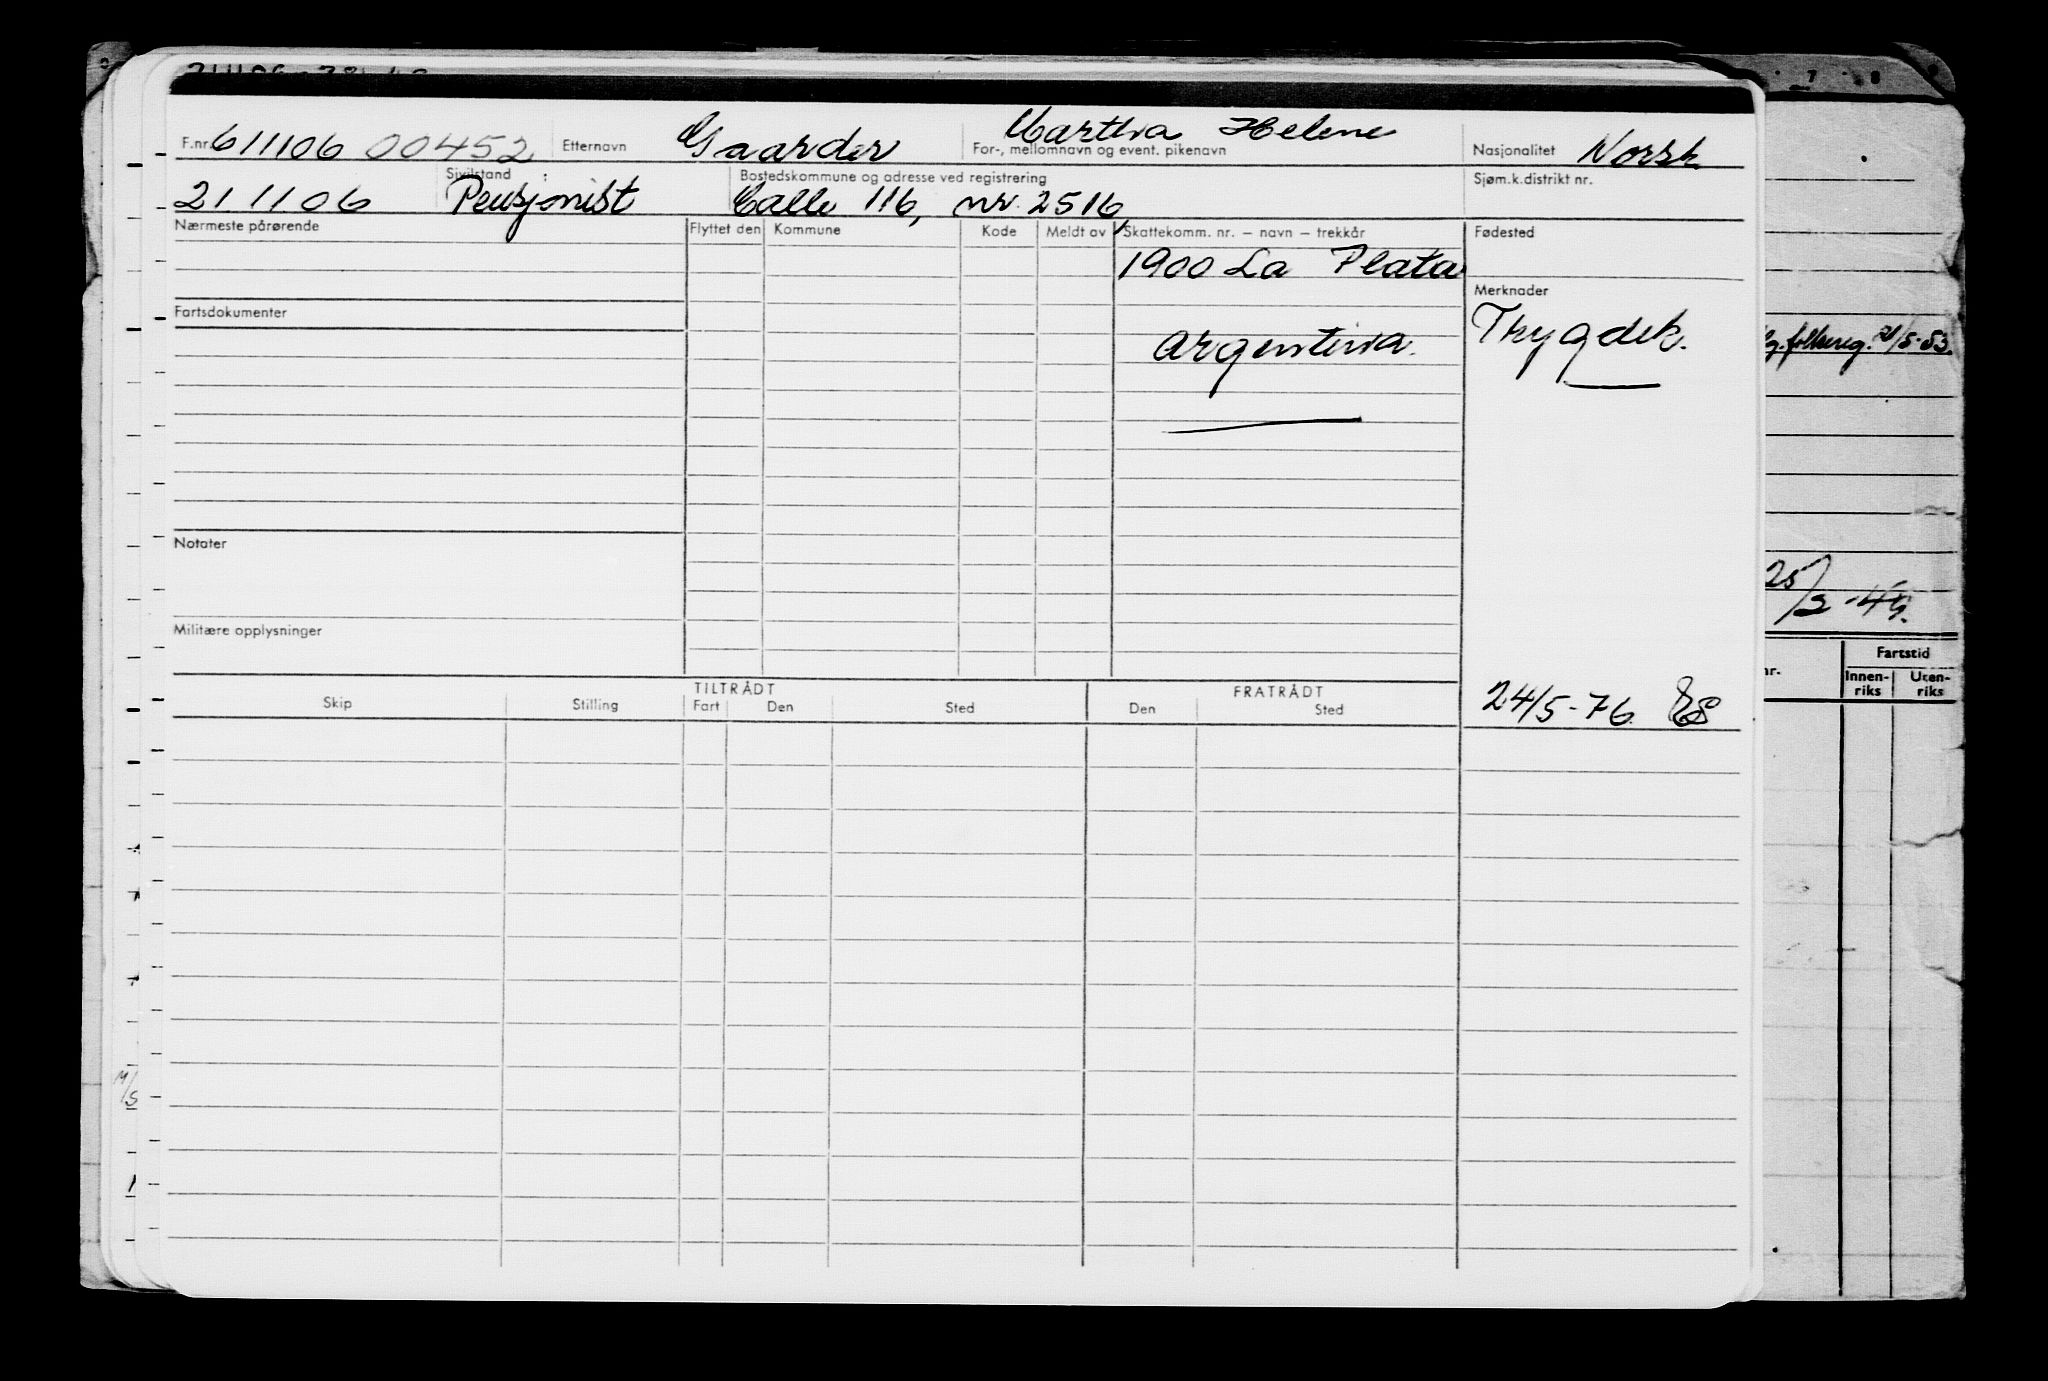 F.nr. 611106 00452 Etternavn Gaarder Martha Helene For-, mellomnavn og event. pikenavn Nasjonalitet Norsk
211106 Sivilstand : Pensjonist Bostedskommune og adresse ved registrering Calle 116, nr. 2516, Sjøm.k.distrikt nr.
Nærmeste pårørende Flyttet den Kommune Kode Meldt av Skattekomm. nr. – navn – trekkår Fødested
1900 La Plata
Merknader
Fartsdokumenter
Trygdek.
Argentina.
Notater
Militære opplysninger
25/2-45.
Fartstid
nr. Innen-riks Uten-riks
TILTRÅDT FRATRÅDT
Skip Stilling Fart Den Sted Den Sted
24/5-76
7 8